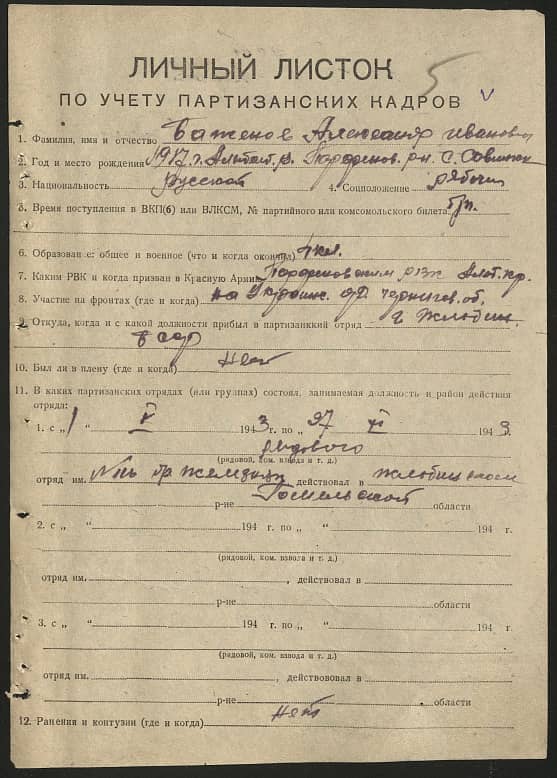 5
ЛИЧНЫЙ ЛИСТОК
ПО УЧЕТУ ПАРТИЗАНСКИХ КАДРОВ V
1. Фамилия, имя и отчество Баженов Александр Иванович
2. Год и место рождения 1917 г. Алтайск. р. с.
3. Национальность Русский 4. Соцположение рабочий
5. Время поступления в ВКП(б) или ВЛКСМ, № партийного или комсомольского билета б/п.
6. Образование: общее и военное (что и когда окончил) 4 кл.
7. Каким РВК и когда призван в Красную Армию РВК Алт. кр.
8. Участие на фронтах (где и когда) на Украинс. Чернигов. об.
9. Откуда, когда и с какой должности прибыл в партизанский отряд г Жлобин.
10. Был ли в плену (где и когда) Нет
11. В каких партизанских отрядах (или группах) состоял, занимаемая должность и район действия
отряда:
1. с „ 1 “ V 1943 г. по „ 27 “ XI 1943 г.
рядового
(рядовой, ком. взвода и т. д.)
отряд им. действовал в Жлобинском
р-не Гомельской области
2. с „ “ 194 г. по „ “ 194 г.
(рядовой, ком. взвода и т. д.)
отряд им. , действовал в
р-не области
3. с „ “ 194 г. по „ “ 194 г.
(рядовой, ком. взвода и т. д.)
отряд им. , действовал в
р-не области
12. Ранения и контузии (где и когда) Нет